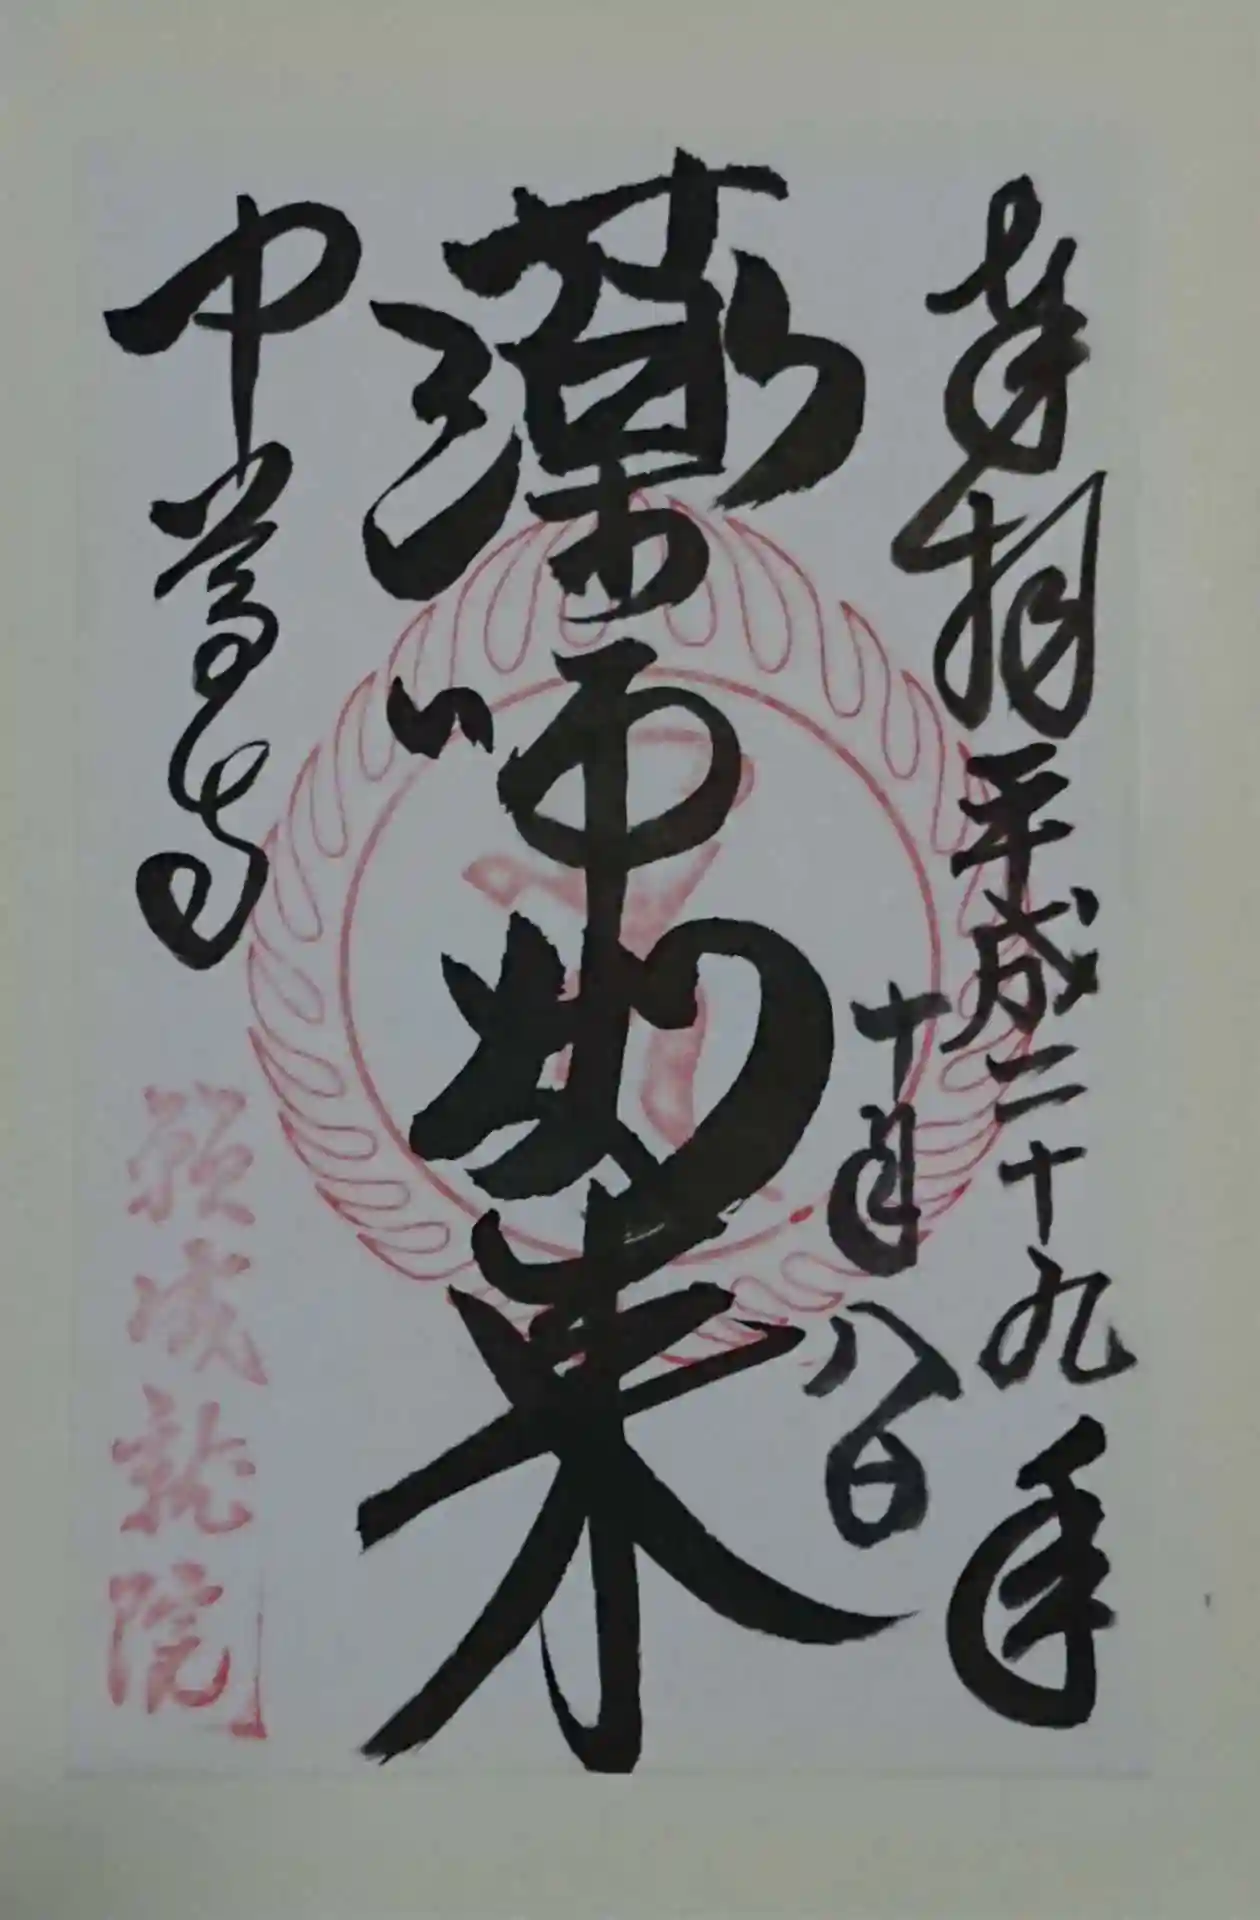 奉拝
平成二十九年
十月八日
薬師如来
中尊寺
願成就院